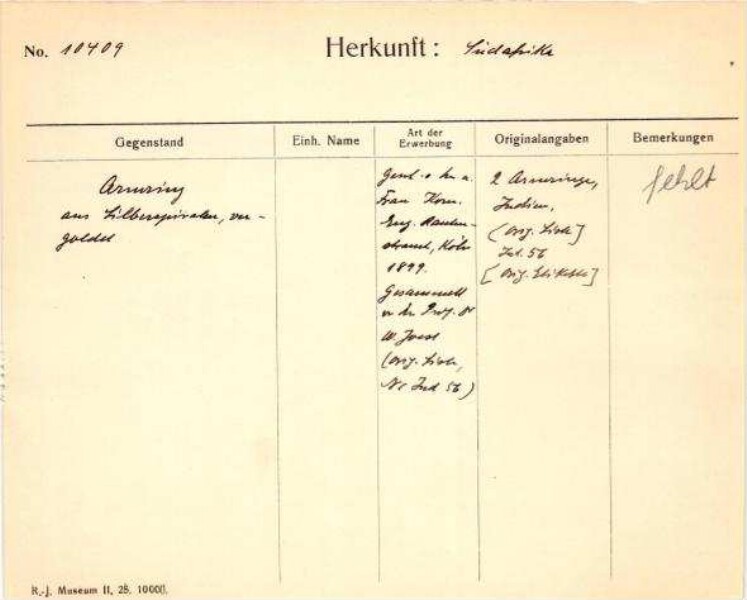 No. 10409
Herkunft: Südafrika
Gegenstand
Einh. Name
Art der
Erwerbung
Originalangaben
Bemerkungen
Armring
aus Silberspiralen, ver-
goldet
Frau Kom.
Eug. Rauten-
strauch, Köln
1899.
Gesammelt
Prof. Dr
W. Joest
(Orig. Liste,
Nr Ind 56)
2 Armringe,
Indien.
(Orig. Liste]
Ind. 56
[Orig. Etikette]
fehlt
R.-J. Museum II, 28. 10000.